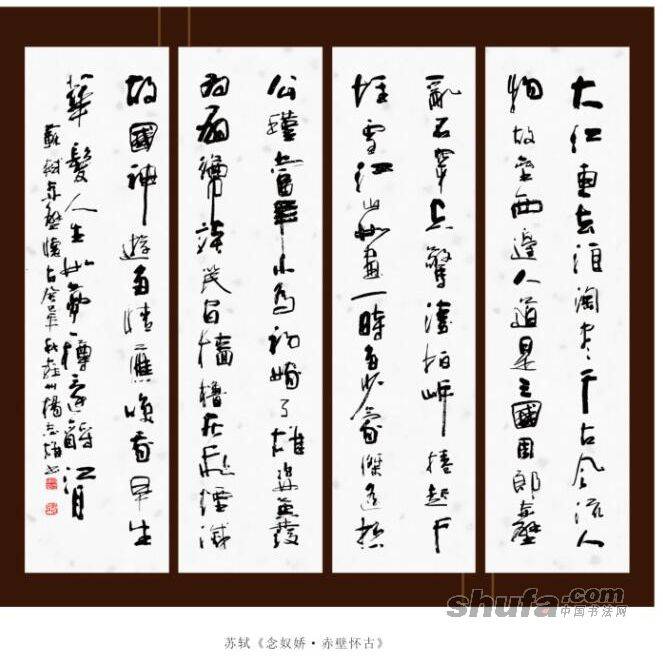 大江東去浪淘盡千古風流人
物故壘西邊人道是三國周郎赤壁
亂石穿空驚濤拍岸捲起千
堆雪江山如畫一時多少豪傑遙想
公瑾當年小喬初嫁了雄姿英發
羽扇綸巾談笑間檣櫓灰飛煙滅
故國神遊多情應咲我早生
華髮人生如夢一樽還酹江月
蘇軾赤壁懷古
苏轼《念奴娇·赤壁怀古》
shufa.com
中国书法网